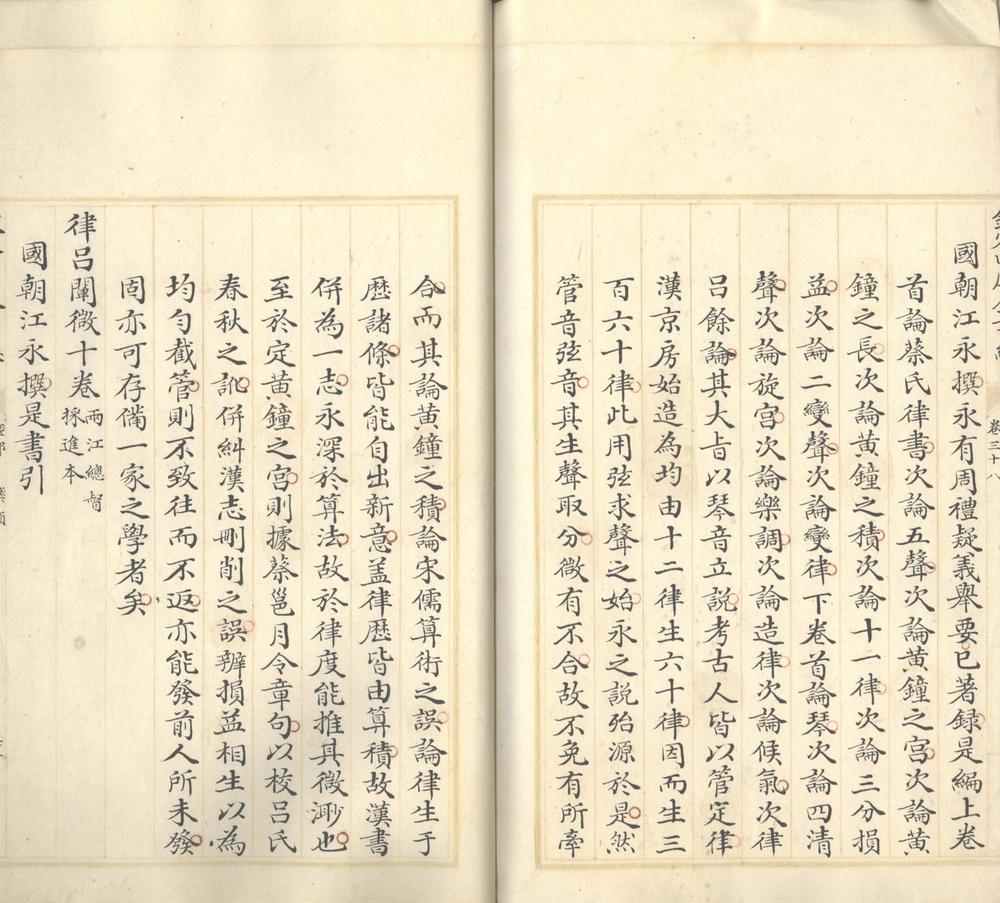 國朝江永撰永有周禮疑義舉要已著録是編上卷
首論蔡氏律書次論五聲次論黄鐘之宫次論黄
鐘之長次論黄鐘之積次論十一律次論三分損
益次論二變聲次論變律下卷首論琴次論四清
聲次論旋宫次論樂調次論造律次論候氣次律
呂餘論其大㫖以琴音立説考古人皆以管定律
漢京房始造為均由十二律生六十律因而生三
百六十律此用弦求聲之始永之説殆源於是然
管音弦音其生聲取分微有不合故不免有所牽
合而其論黄鐘之積論宋儒算術之誤論律生于
歴諸條皆能自出新意盖律歴皆由算積故漢書
併為一志永深於算法故於律度能推其微渺也
至於定黄鐘之宫則據蔡邕月令章句以校吕氏
春秋之訛併糾漢志刪削之誤辨損益相生以為
均匀截管則不致往而不返亦能發前人所未發
固亦可存備一家之學者矣
律呂闡微十卷兩江總督採進本
國朝江永撰是書引
卷三十八